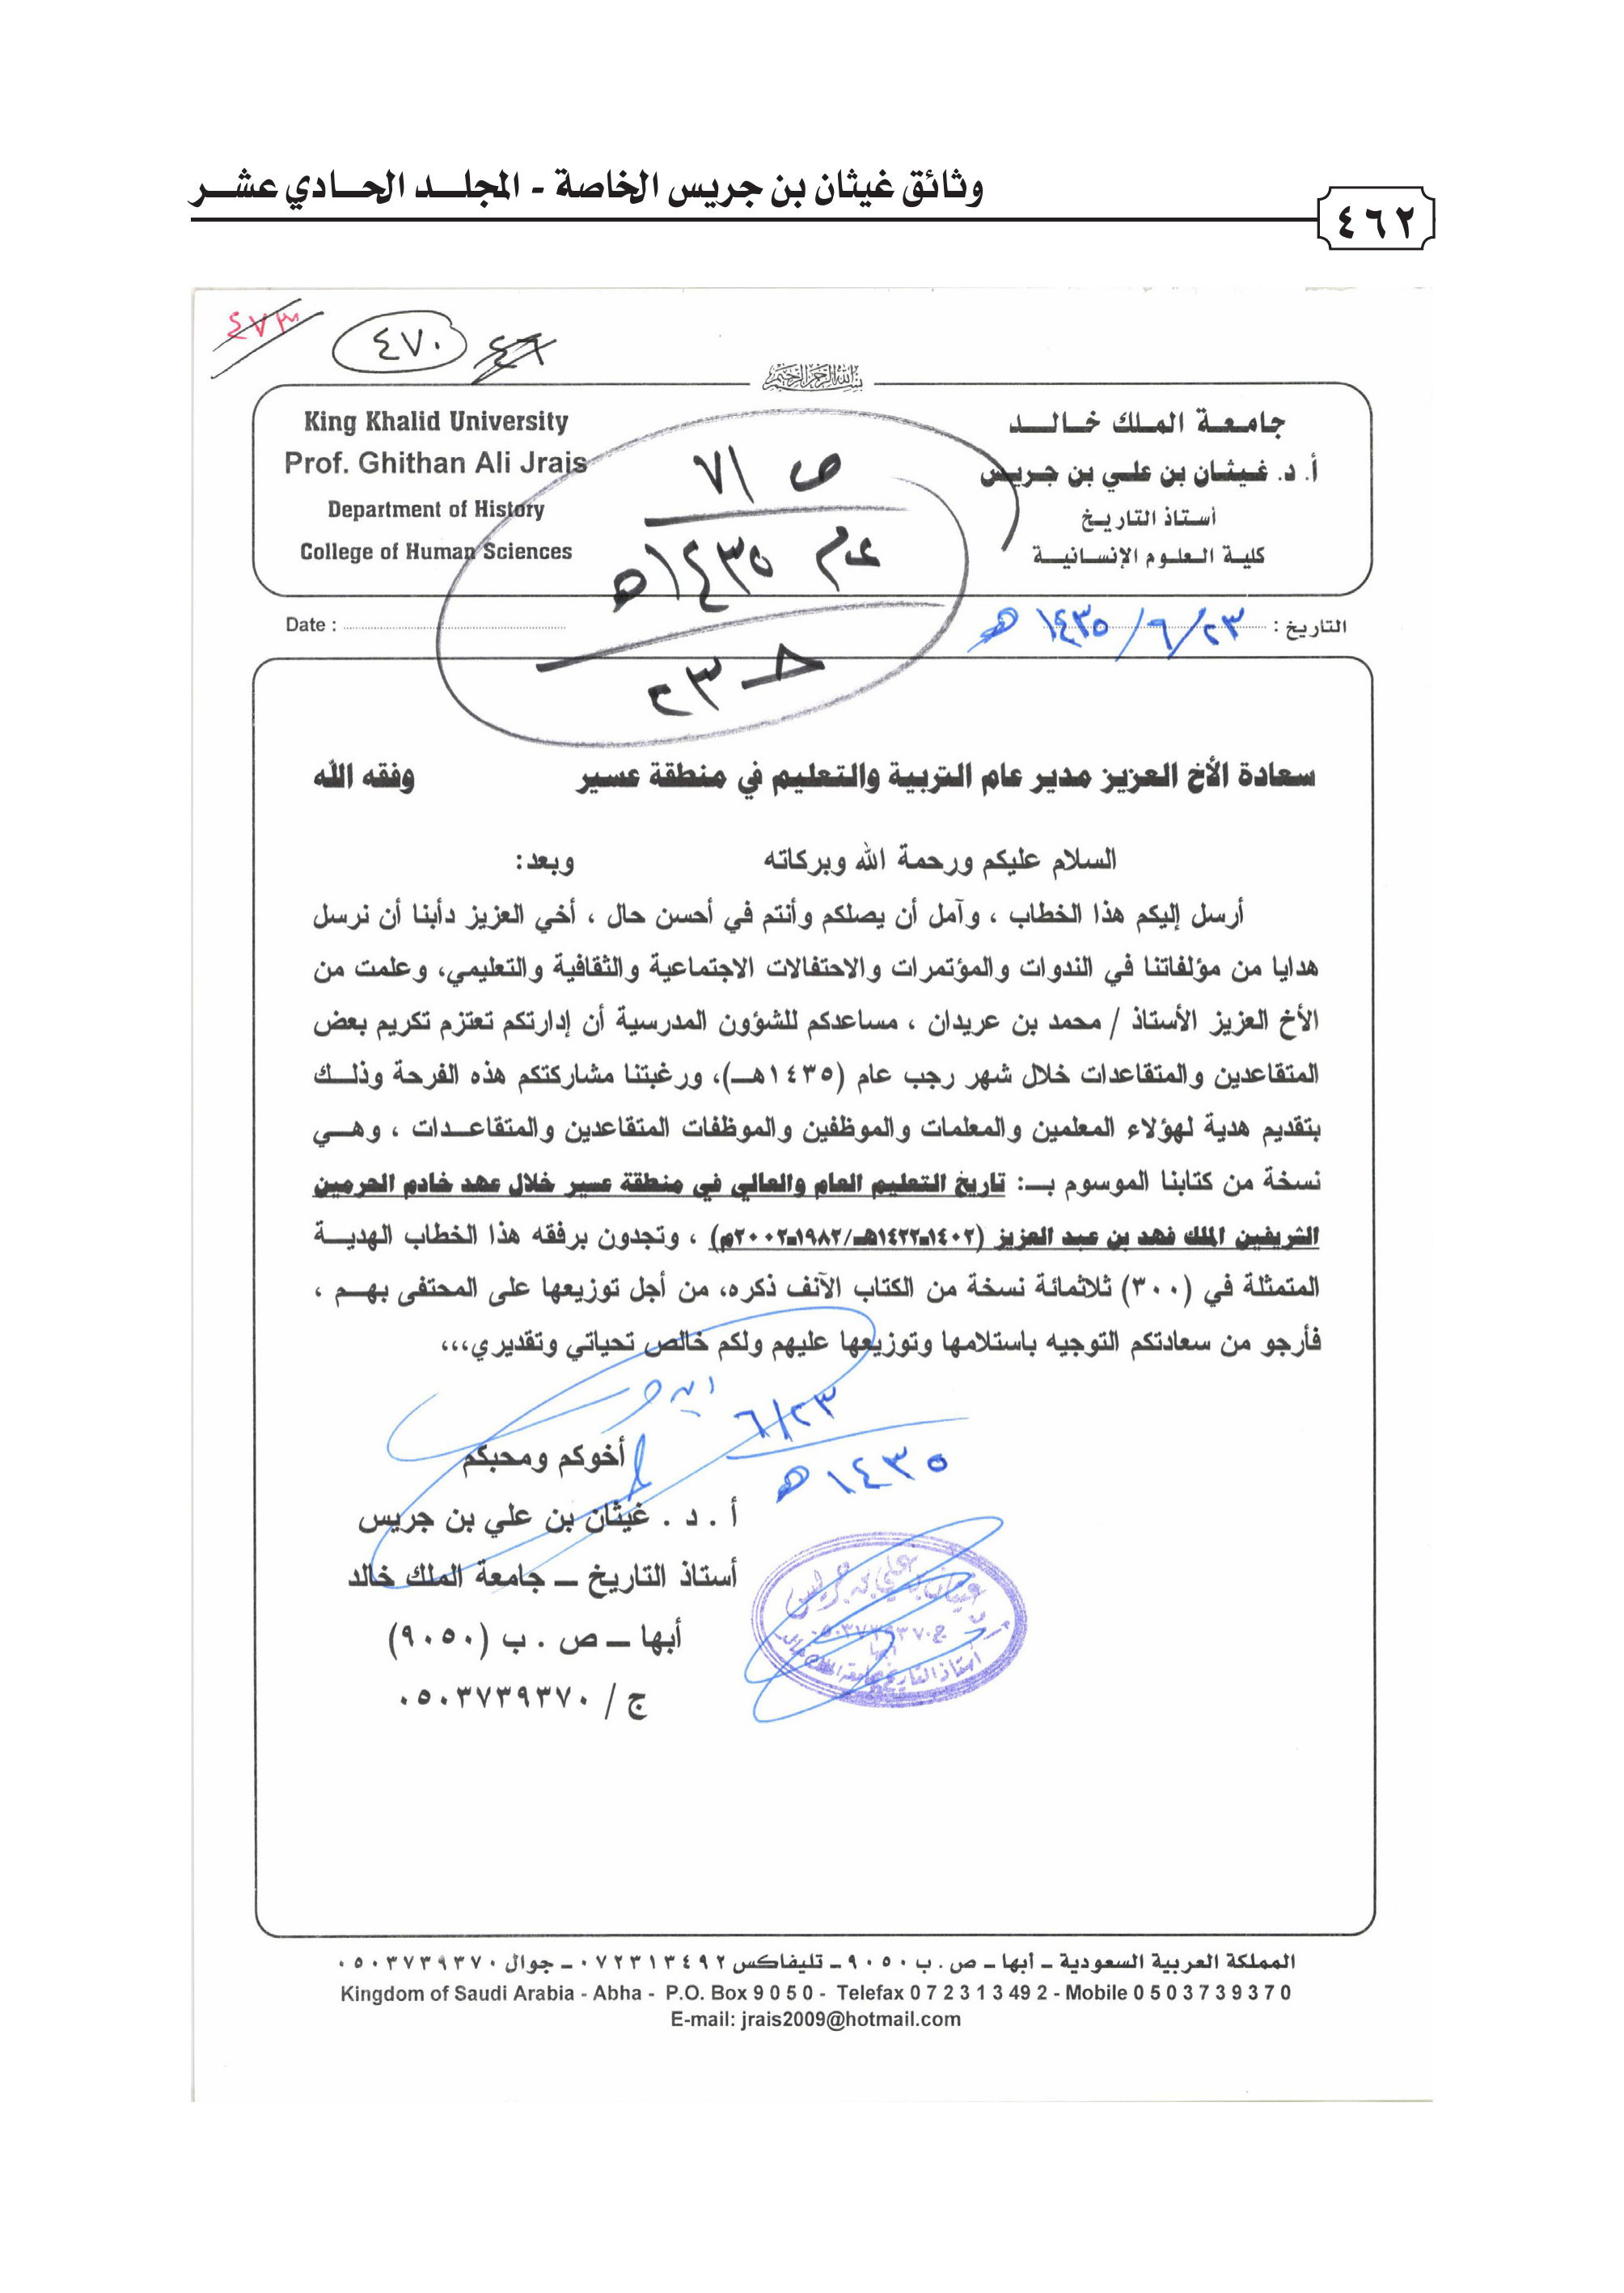 وثائق غيثان بن جريس الخاصة - المجلـــد الحـــادي عشـــر
٤٦٢
٤٧٣
٤٧٠
٤٦
بسم الله الرحمن الرحيم
جامعـة الملـك خـالـــد
أ. د. غيـثـان بن علـي بن جـريـس
أستـاذ التاريـخ
كليـة العـلـوم الإنسـانيـــة
King Khalid University
Prof. Ghithan Ali Jrais
Department of History
College of Human Sciences
ص ٧١
عام ١٤٣٥هـ
٢٣
التاريخ : ٢٣/٦/١٤٣٥هـ
Date :
سعادة الأخ العزيز مدير عام التربية والتعليم في منطقة عسير وفقه الله
السلام عليكم ورحمة الله وبركاته وبعد:
أرسل إليكم هذا الخطاب ، وآمل أن يصلكم وأنتم في أحسن حال ، أخي العزيز دأبنا أن نرسل
هدايا من مؤلفاتنا في الندوات والمؤتمرات والاحتفالات الاجتماعية والثقافية والتعليمي، وعلمت من
الأخ العزيز الأستاذ / محمد بن عريدان ، مساعدكم للشؤون المدرسية أن إدارتكم تعتزم تكريم بعض
المتقاعدين والمتقاعدات خلال شهر رجب عام (١٤٣٥هــ)، ورغبتنا مشاركتكم هذه الفرحة وذلــك
بتقديم هدية لهؤلاء المعلمين والمعلمات والموظفين والموظفات المتقاعدين والمتقاعــدات ، وهــي
نسخة من كتابنا الموسوم بــ: تاريخ التعليم العام والعالي في منطقة عسير خلال عهد خادم الحرمين
الشريفين الملك فهد بن عبد العزيز (١٤٠٢ـ١٤٢٢هـ/١٩٨٢ـ٢٠٠٢م) ، وتجدون برفقه هذا الخطاب الهديــة
المتمثلة في (٣٠٠) ثلاثمائة نسخة من الكتاب الآنف ذكره، من أجل توزيعها على المحتفى بهــم ،
فأرجو من سعادتكم التوجيه باستلامها وتوزيعها عليهم ولكم خالص تحياتي وتقديري،،،
٢٣/٦
١٤٣٥هـ
أخوكم ومحبكم
أ . د . غيثان بن علي بن جريس
أستاذ التاريخ ــ جامعة الملك خالد
أبها ــ ص . ب (٩٠٥٠)
ج / ٠٥٠٣٧٣٩٣٧٠
أ.د غيثان بن علي بن جريس
ج ٠٥٠٣٧٣٩٣٧٠
أبها
أستاذ التاريخ بجامعة الملك خالد
المملكة العربية السعودية ـ أبها ـ ص . ب ٩٠٥٠ ـ تليفاكس ٠٧٢٣١٣٤٩٢ ـ جوال ٠٥٠٣٧٣٩٣٧٠
Kingdom of Saudi Arabia - Abha - P.O. Box 9 0 5 0 - Telefax 0 7 2 3 1 3 49 2 - Mobile 0 5 0 3 7 3 9 3 7 0
E-mail: jrais2009@hotmail.com